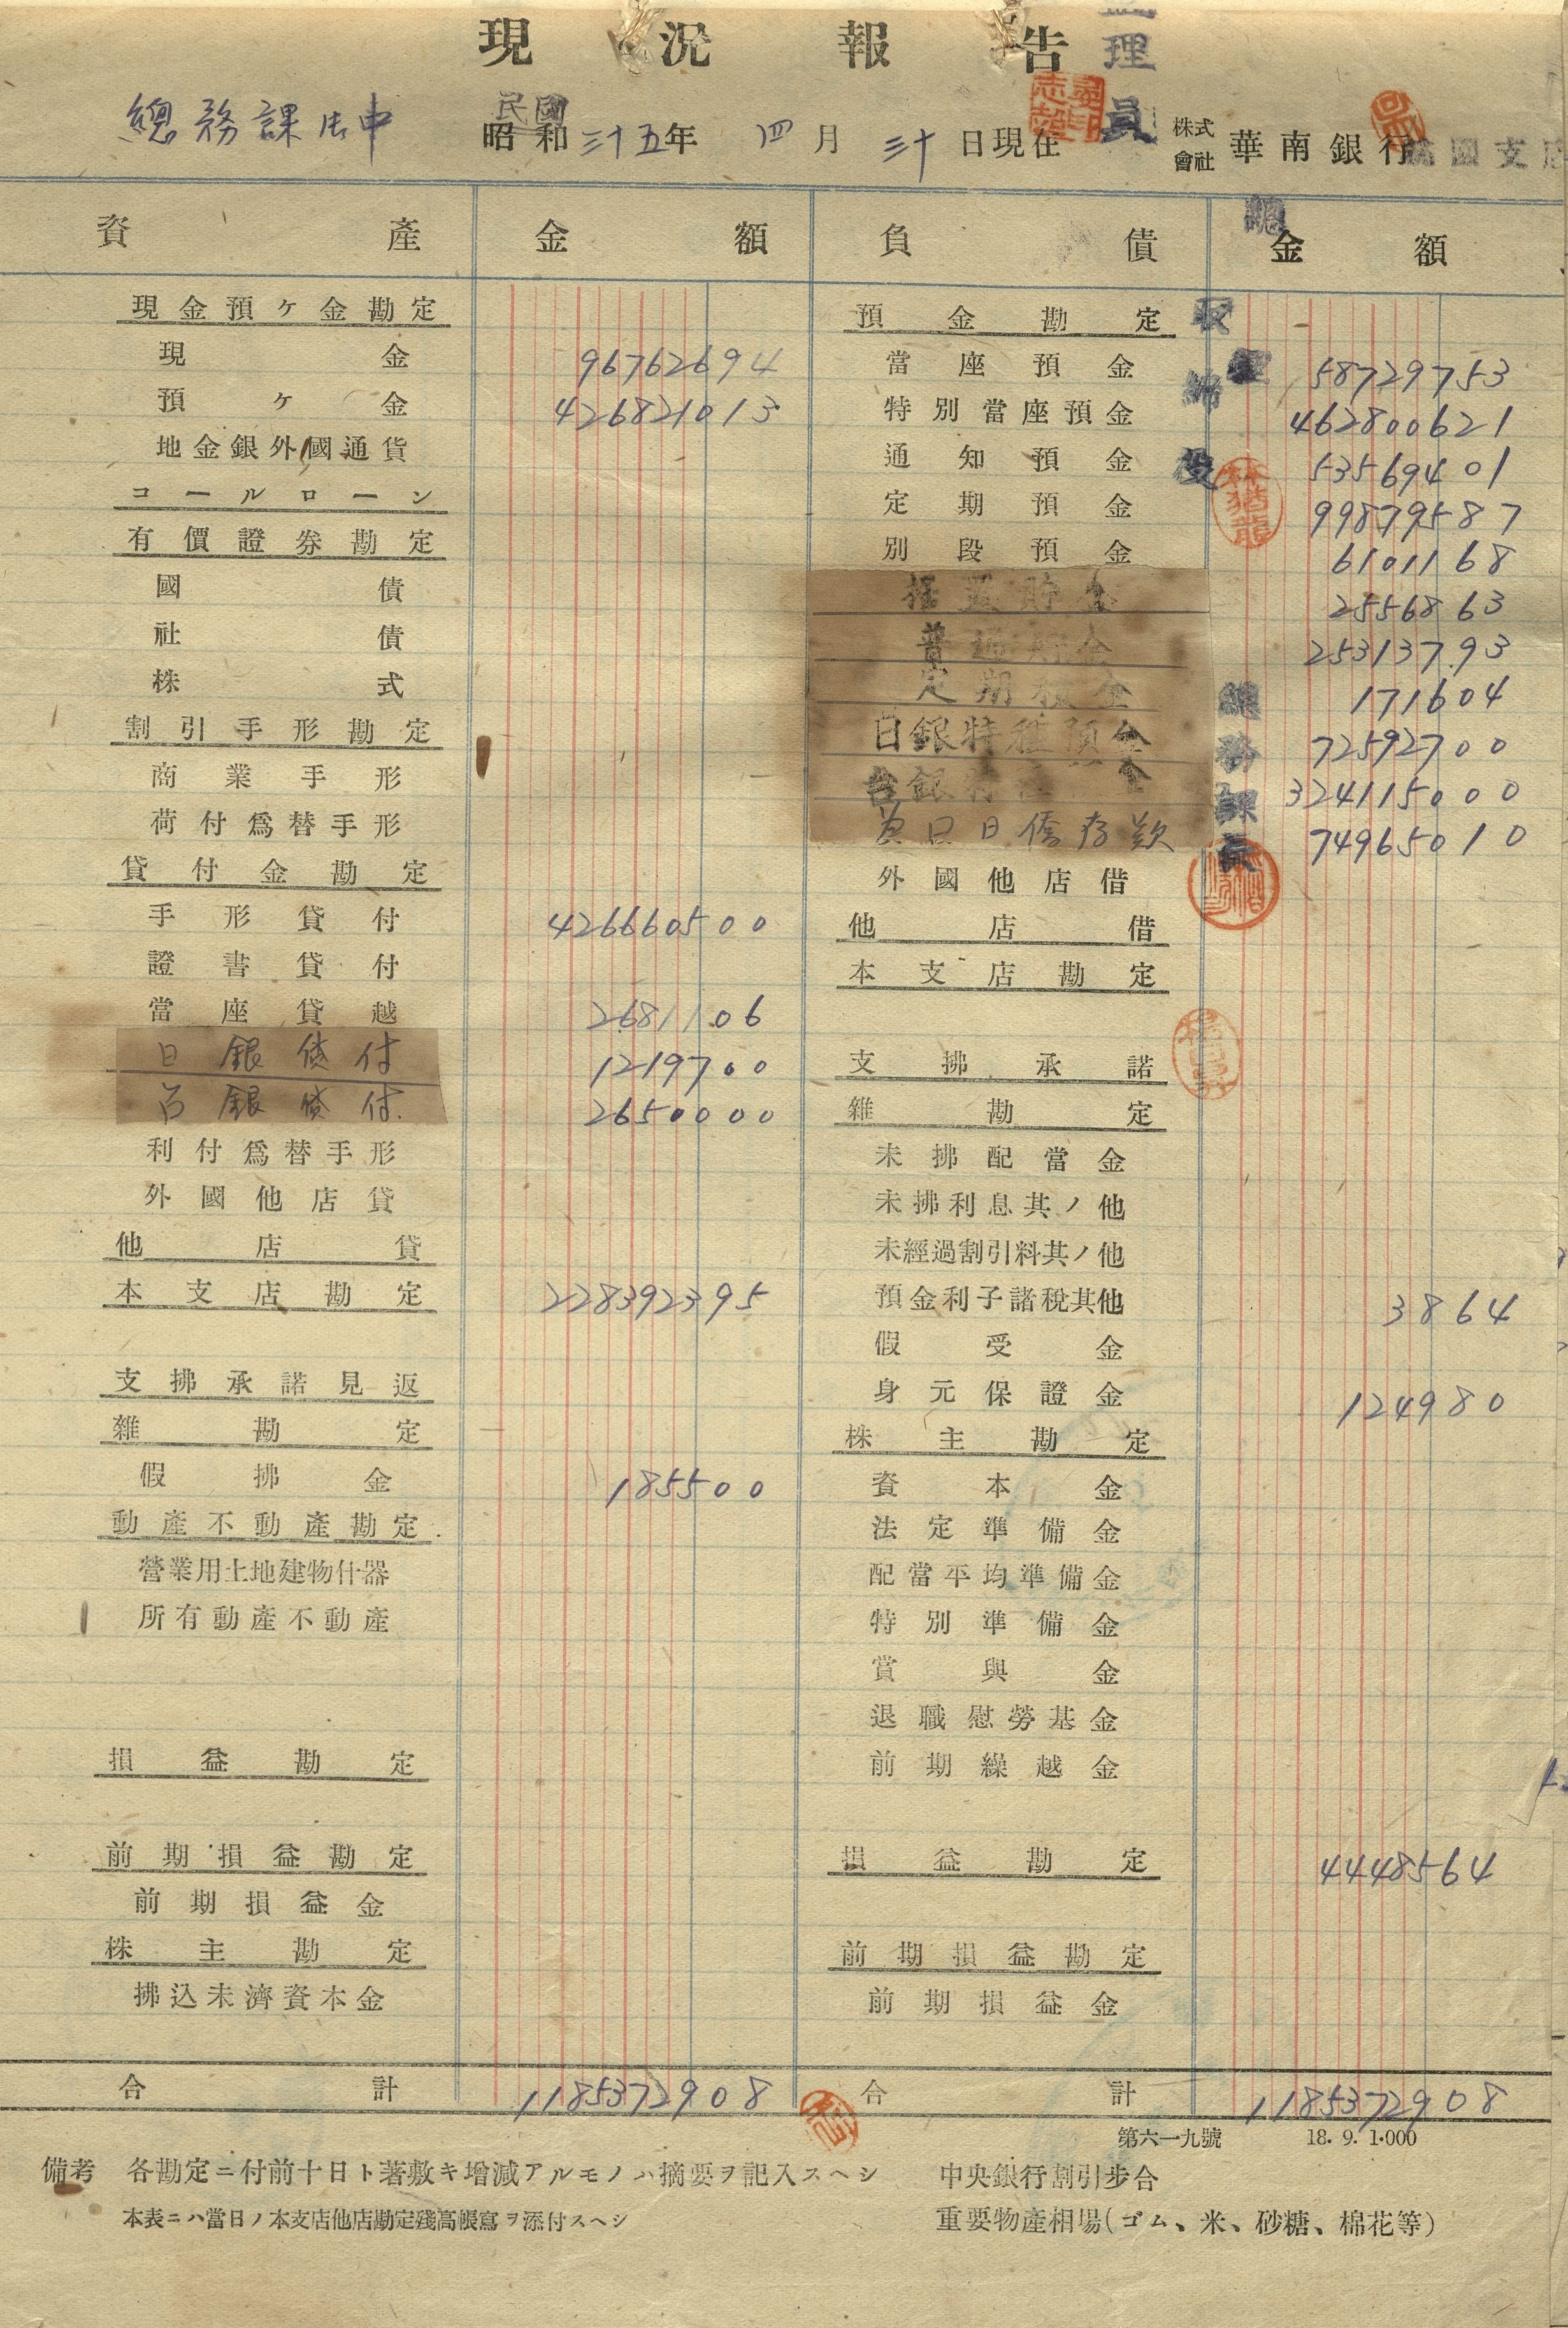 現況報告
理員
總務課御中
民國
昭和三十五年 四月 三十日現在
株式會社 華南銀行 支店
資產 金額 負債 金額
現金預ケ金勘定
現金 96762694
預ケ金 426821013
地金銀外國通貨
コールローン
有價證券勘定
國債
社債
株式
割引手形勘定
商業手形
荷付爲替手形
貸付金勘定
手形貸付 426660500
證書貸付
當座貸越 2681106
日銀貸付 1219700
台銀貸付 2650000
利付爲替手形
外國他店貸
他店貸
本支店勘定 228392395
支拂承諾見返
雜勘定
假拂金 185500
動產不動產勘定
營業用土地建物什器
所有動產不動產
損益勘定
前期損益勘定
前期損益金
株主勘定
拂込未濟資本金
合計 1185372908
預金勘定
當座預金 58729753
特別當座預金 462800621
通知預金 53569401
定期預金 99879587
別段預金 6101168
据置貯金 2556863
普通貯金 25313793
定期積金 171604
日銀特種預金 72592700
台銀特種預金 324115000
日僑存款 74965010
外國他店借
他店借
本支店勘定
支拂承諾
雜勘定
未拂配當金
未拂利息其ノ他
未經過割引料其ノ他
預金利子諸稅其他 3864
假受金
身元保證金 124980
株主勘定
資本金
法定準備金
配當平均準備金
特別準備金
賞與金
退職慰勞基金
前期繰越金
損益勘定 4448564
前期損益勘定
前期損益金
合計 1185372908
總務課長
林猶龍
第六一九號 18. 9. 1·000
備考 各勘定ニ付前十日ト著敷キ增減アルモノハ摘要ヲ記入スヘシ
本表ニハ當日ノ本支店他店勘定殘高帳寫ヲ添付スヘシ
中央銀行割引步合
重要物產相場(ゴム、米、砂糖、棉花等)